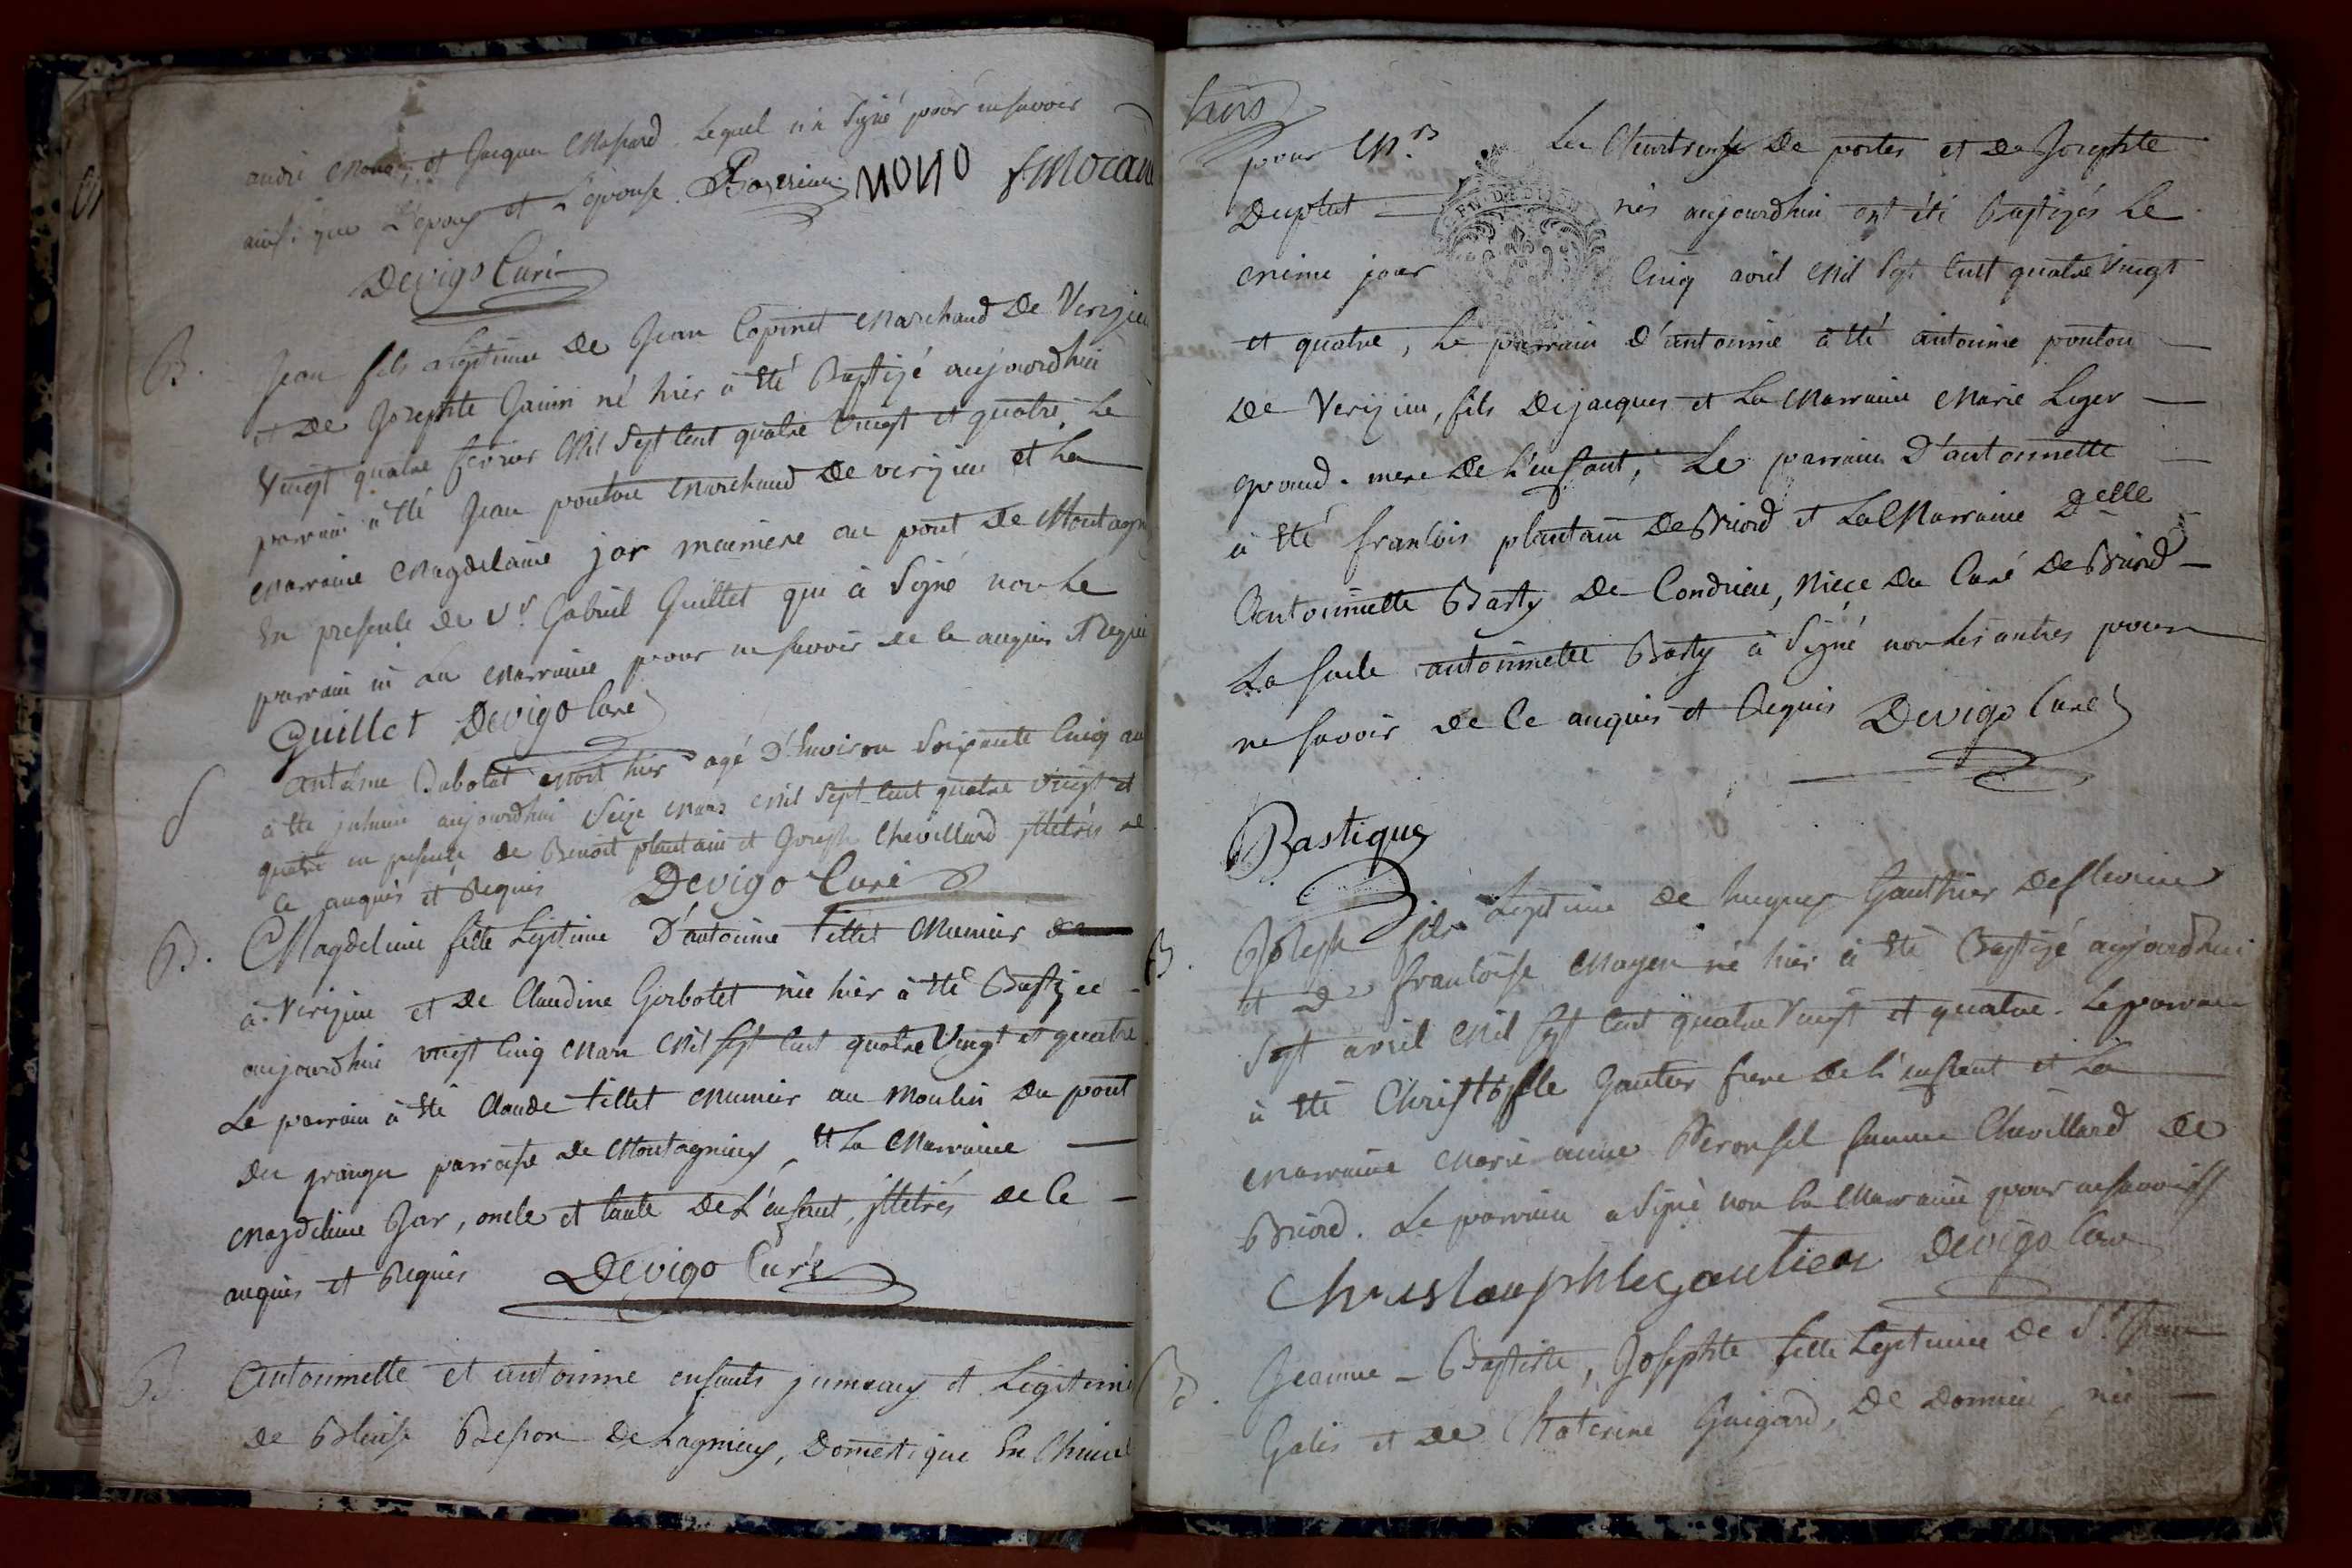 andré et Jacques lequel n'a signé pour ne savoir
ainsi que L'epoux et L'epouse. NONO
Devigo Curé
B. Jean fils legitime de Jean Copinet marchand de Verizieu
et de Josephte né hier à été Baptizé aujourdhui
Vingt quatre fevrier mil sept cent quatre vingt et quatre, Le
parrain à été Jean ponton marchand de verizieu et La
marraine magdelaine jar muniere au pont de Montagn
En presence de Sr. Gabriel Guillet qui à signé non Le
parrain ni La marraine pour ne savoir de ce enquis et Requis
Guillet Devigo Curé
S antelme mort hier agé D'Environ soixante cinq an
à été inhumé aujourdhui seize mars mil sept cent quatre vingt et
quatre en presence de Benoit plantain et Joseph Chevillard illetrés de
ce enquis et Requis Devigo Curé
B. Magdeleine fille Legitime D'antoine tillet Munier
à Verizieu et de Claudine Gerbotet née hier à été Baptizée
aujourdhui vingt cinq mars mil sept cent quatre Vingt et quatre
Le parrain à été Claude tillet munier au moulin Du pont
Du granger parroisse de Montagnieu, et La Marraine
magdeleine Jar, oncle et tante de L'enfant, illetrés de ce
enquis et Requis Devigo Curé
B. Antoinette et antoine enfants jumeaux et Legitimes
de Blaise Besson de Lagnieu, Domestique En Chave
trois
pour Mrs Les Chartreux De portes et de Josephte
Duplat nés aujourdhui ont été Baptizés Le
meme jour Cinq avril mil sept cent quatre vingt
et quatre, Le parrain d'antoine à été antoine ponton
de Verizieu, fils De jacques et La Marraine Marie Leger
grand-mere De L'enfant, Le parrain D'antoinette
à été francois plantain de Briord et La Marraine Delle
Antoinette Basty De Condrieu, Niece Du Curé De Briord
La seule antoinette Basty à signé non Les autres pour
ne savoir de Ce enquis et Requis Devigo Curé
B. Joseph fils Legitime de hugues Gauthier
et De francoise Mayen né hier à été Baptizé aujourdhui
sept avril mil sept cent quatre vingt et quatre. Le parrain
à été Christofle Gautier frere de L'enfant et La
marraine marie anne femme Chevillard de
Briord. Le parrain a signé non la Marraine pour ne savoir
Christouphle gautier Devigo Curé
B. Jeanne-Baptiste, Josephte fille Legitime de Sr.
Galis et de Guigard, de Dornieu, née